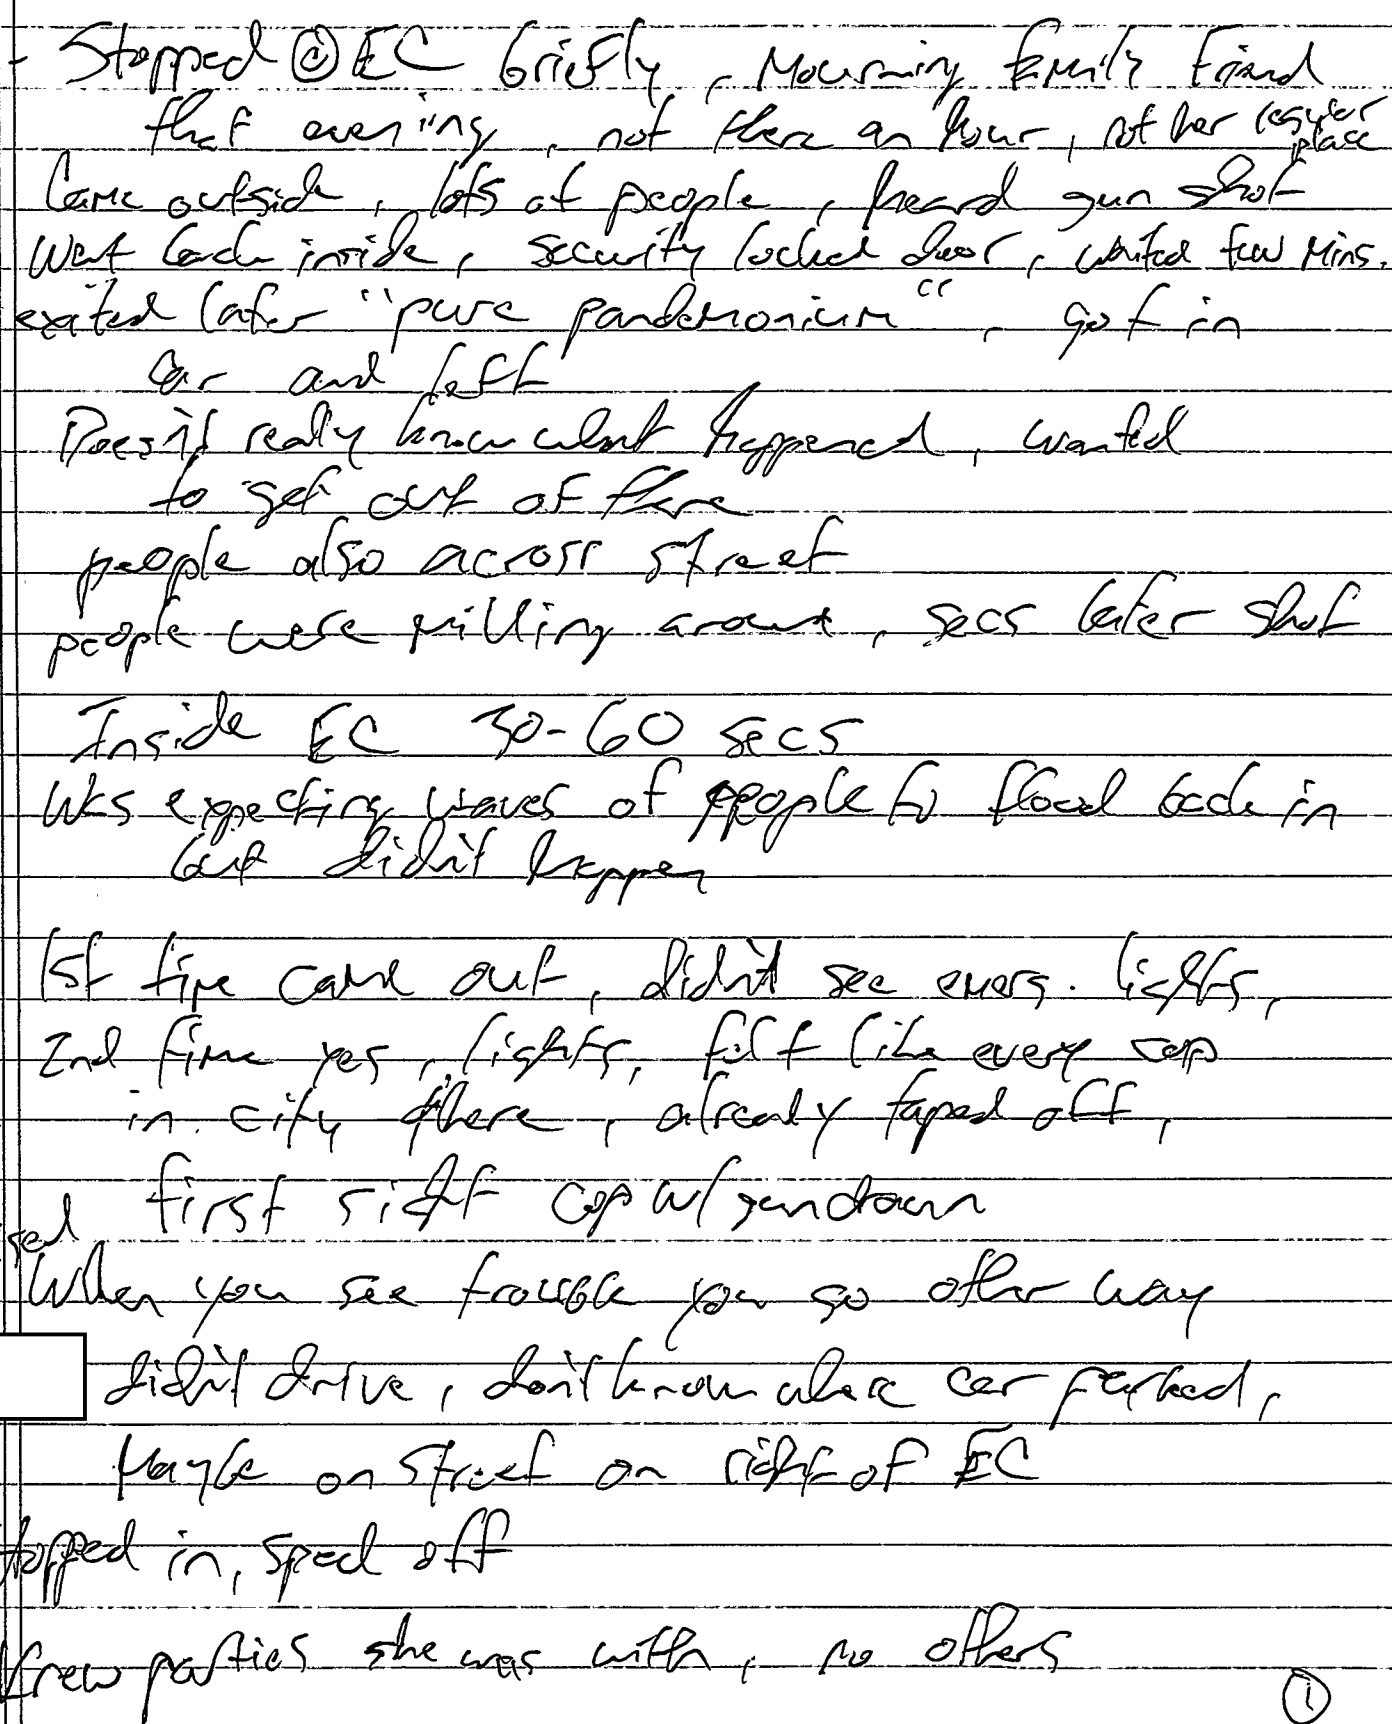 - Stopped @ EC briefly, Mourning family friend
that evening, not there an hour, not her regular place
Came outside, lots of people, heard gun shot
Went back inside, security locked door, waited few mins.
exited later "pure pandemonium", got in
car and left
Doesn't really know what happened, wanted
to get out of there
people also across street
people were milling around, secs later shot
Inside EC 30-60 secs
Was expecting waves of people to flood back in
but didn't happen
1st time came out, didn't see emerg. lights,
2nd time yes, lights, felt like every cop
in city there, already taped off,
first sight cop w/ gun drawn
When you see trouble you go other way
didn't drive, don't know where car parked,
Maybe on street on right of EC
hopped in, sped off
Knew parties she was with, no others
1